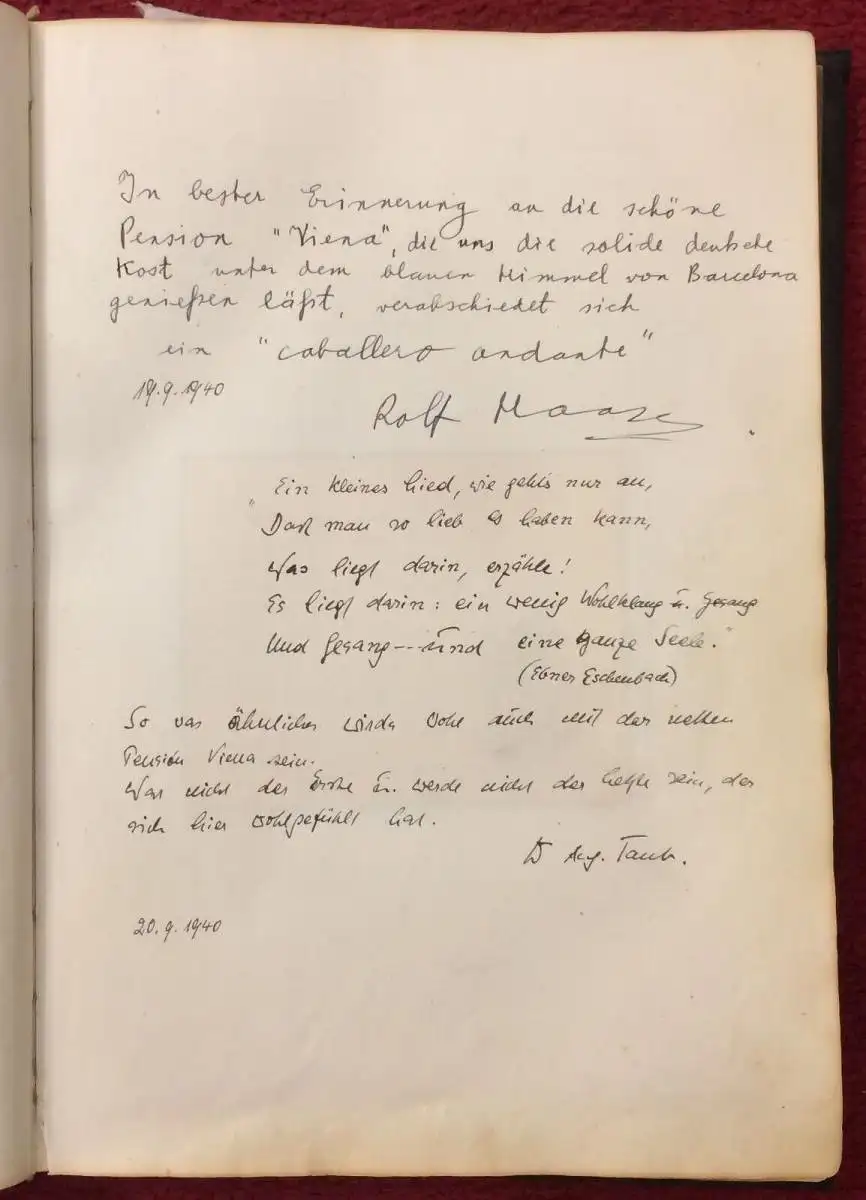 In bester Erinnerung an die schöne
Pension "Viena", die uns die solide deutsche
Kost unter dem blauen Himmel von Barcelona
genießen läßt, verabschiedet sich
ein "caballero andante"
19.9.1940
Rolf
"Ein kleines Lied, wie gehts nur an,
Daß man so lieb es haben kann,
Was liegt darin, erzähle!
Es liegt darin: ein wenig Wohlklang u. Gesang
Und Gesang -- und eine ganze Seele."
(Ebner Eschenbach)
So was ähnliches wirds wohl auch mit der netten
Pension Viena sein.
War nicht der Erste u. werde nicht der letzte sein, der
sich hier wohlgefühlt hat.
Taub.
20.9.1940